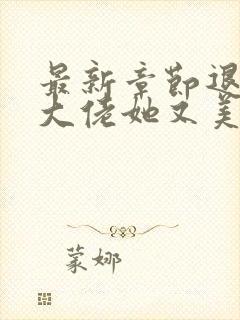 最新章节退
大佬她又美
蒙娜